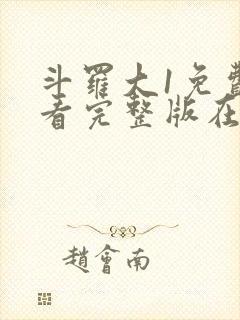 斗羅大1免費
看完整版在
趙會南